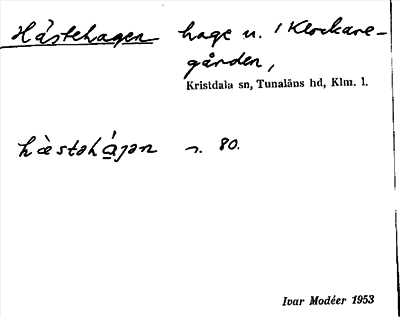 Hästehagen hage u. 1 Klockare-
gården,
Kristdala sn, Tunaläns hd, Klm. l.
hὰstəhá̱ȷən n. 80.
Ivar Modéer 1953